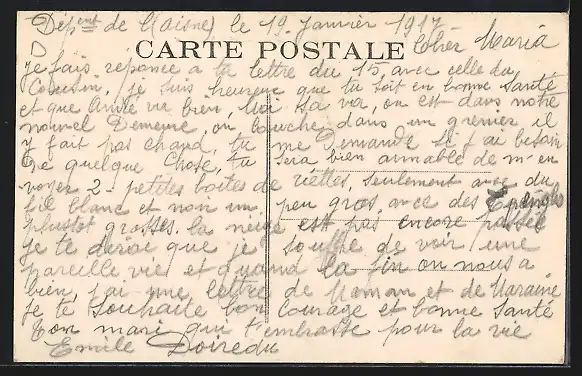 Dépent de l(aisne) le 19 Janvier 1917
CARTE POSTALE
Cher Maria
je fais reponce a ta lettre du 15, avec celle du
Cousin, je suis heureux que tu soit en bonne santé
et que Aimé va bien, Moi sa va, on est dans notre
nouvel Demeure, on couche dans un grenier il
y fait pas chaud, tu me Demande si j'ai besoin
de quelque Chose, tu sera bien aimable de m'en
voyer 2 petites boites de seulement avec du
fil blanc et non un peu gros, avec des Epingles
plustot grosses. la neige est pas encore passée
je te dirai que je souffre de voir une
pareille vie et quand la fin on nous a
bien, j'ai une lettre de Maman et de Maraine
je te Souhaite bon Courage et bonne Santé
ton mari qui t'embrasse pour la vie
Emile Doiredu